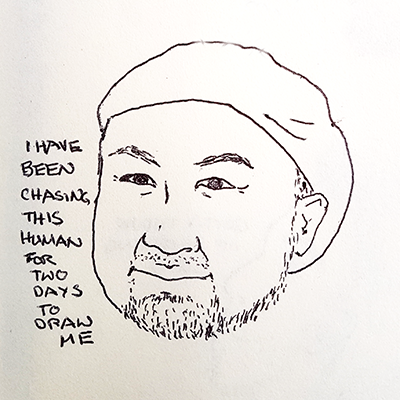 I HAVE
BEEN
CHASING
THIS
HUMAN
FOR
TWO
DAYS
TO
DRAW
ME